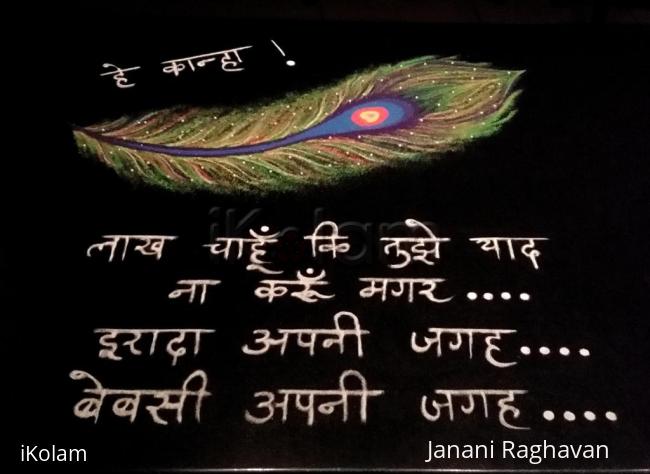 हे कान्हा !
iKolam
लाख चाहूँ कि तुझे याद
ना करूँ मगर ....
इरादा अपनी जगह....
बेबसी अपनी जगह ....
iKolam
Janani Raghavan